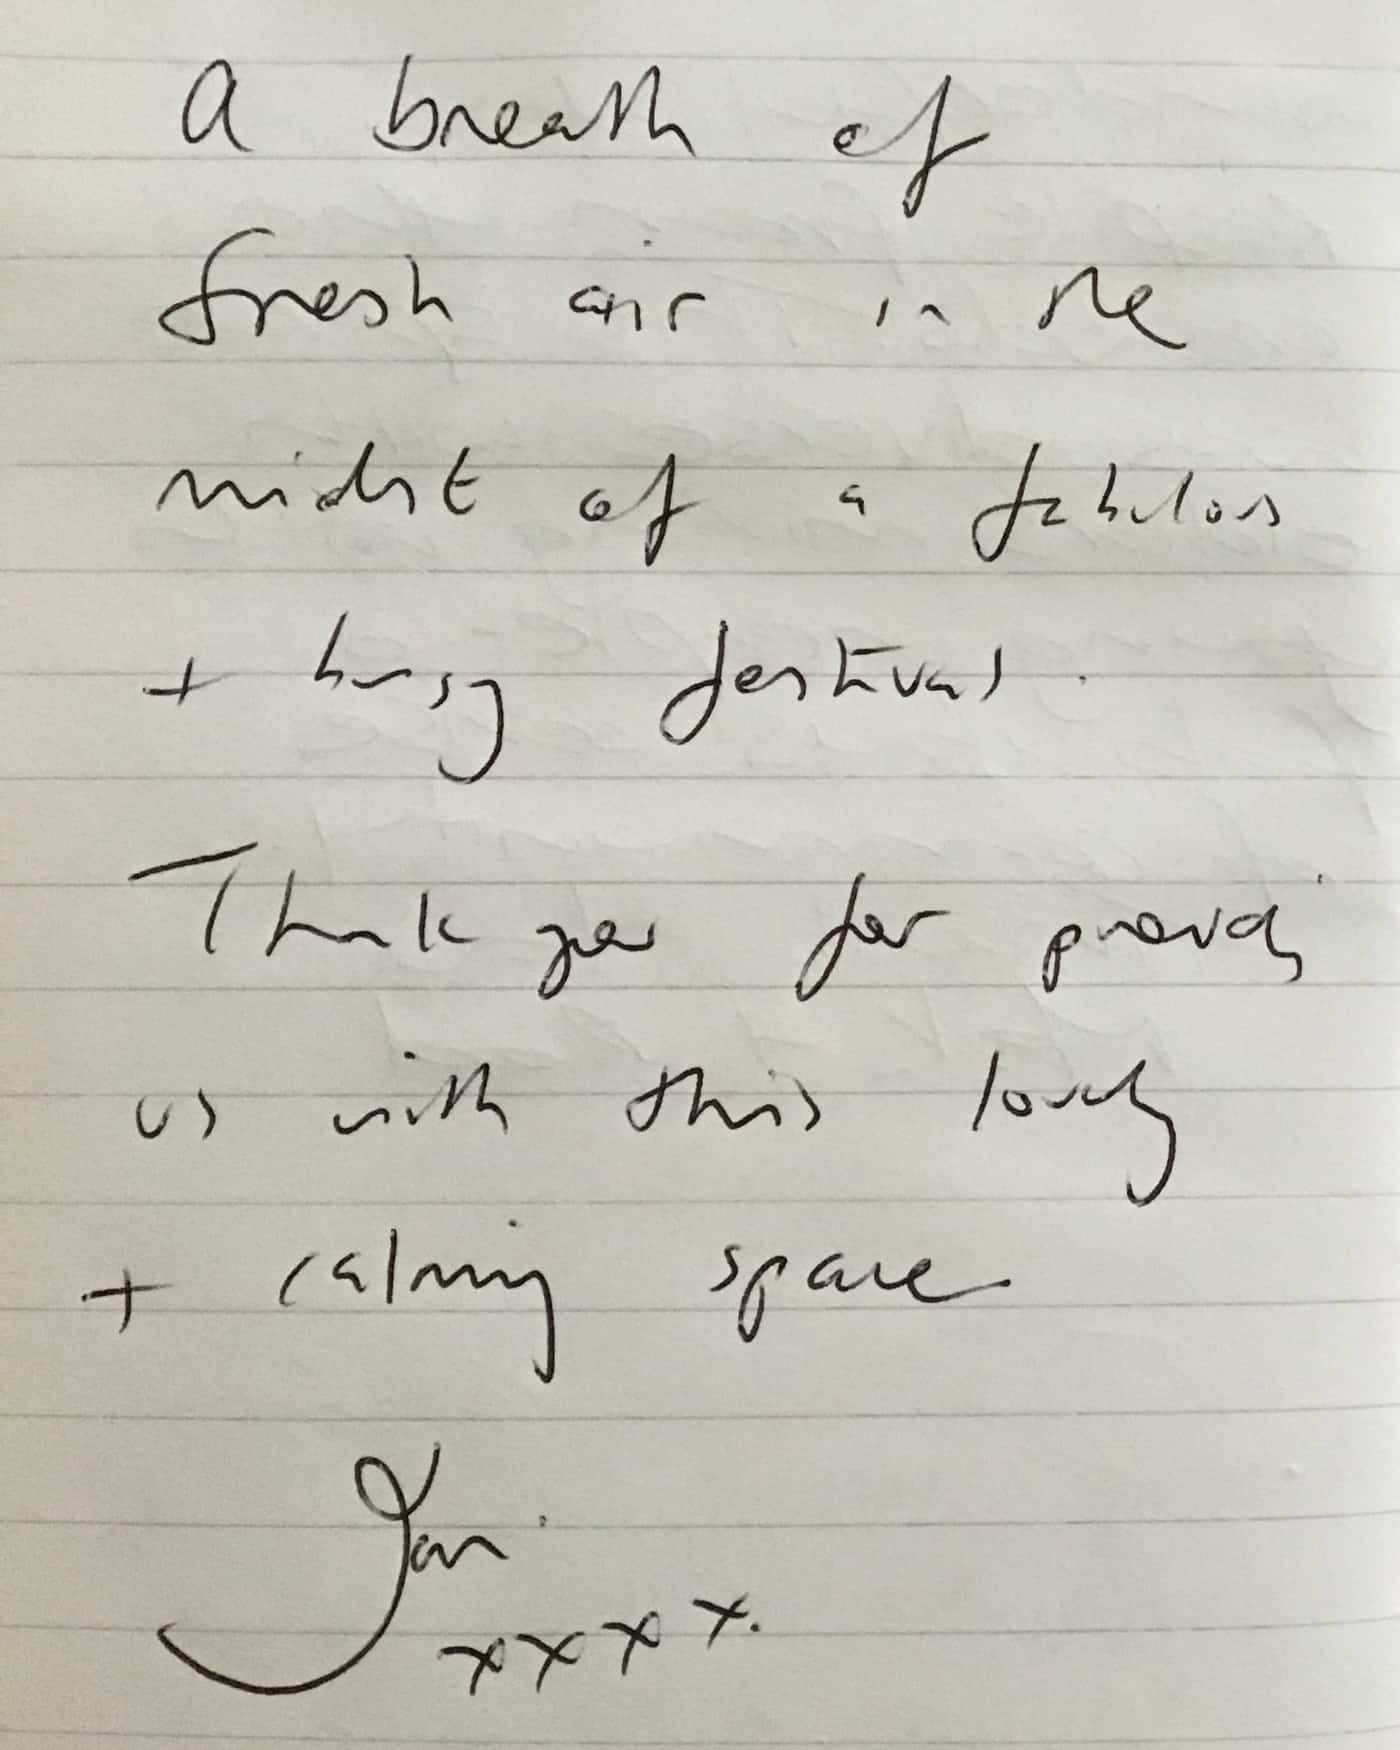 A breath of
fresh air in the
midst of a fabulous
+ busy festival.
Thank you for providing
us with this lovely
+ calming space
xxxx.